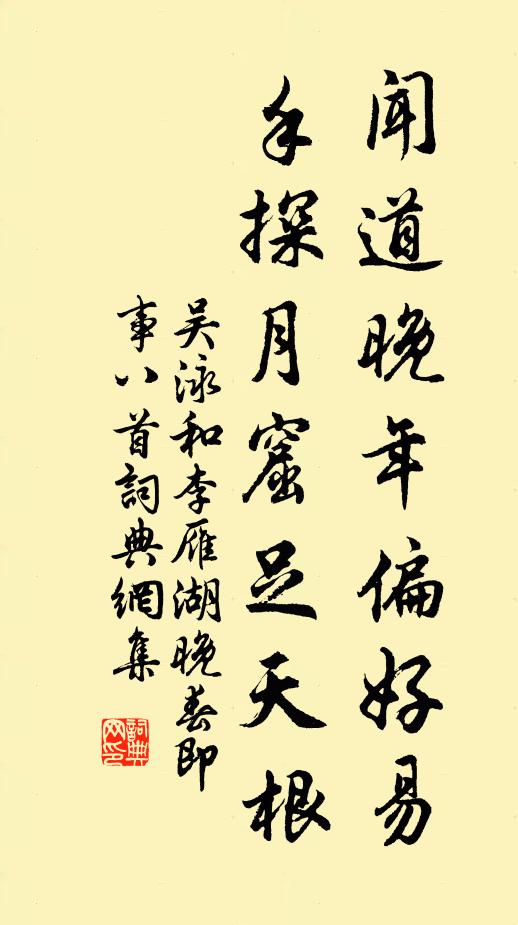 闻道晚年偏好易
手探月窟足天根
吴泳和李雁湖晚春即
事八首詞典網集
詞典
网印